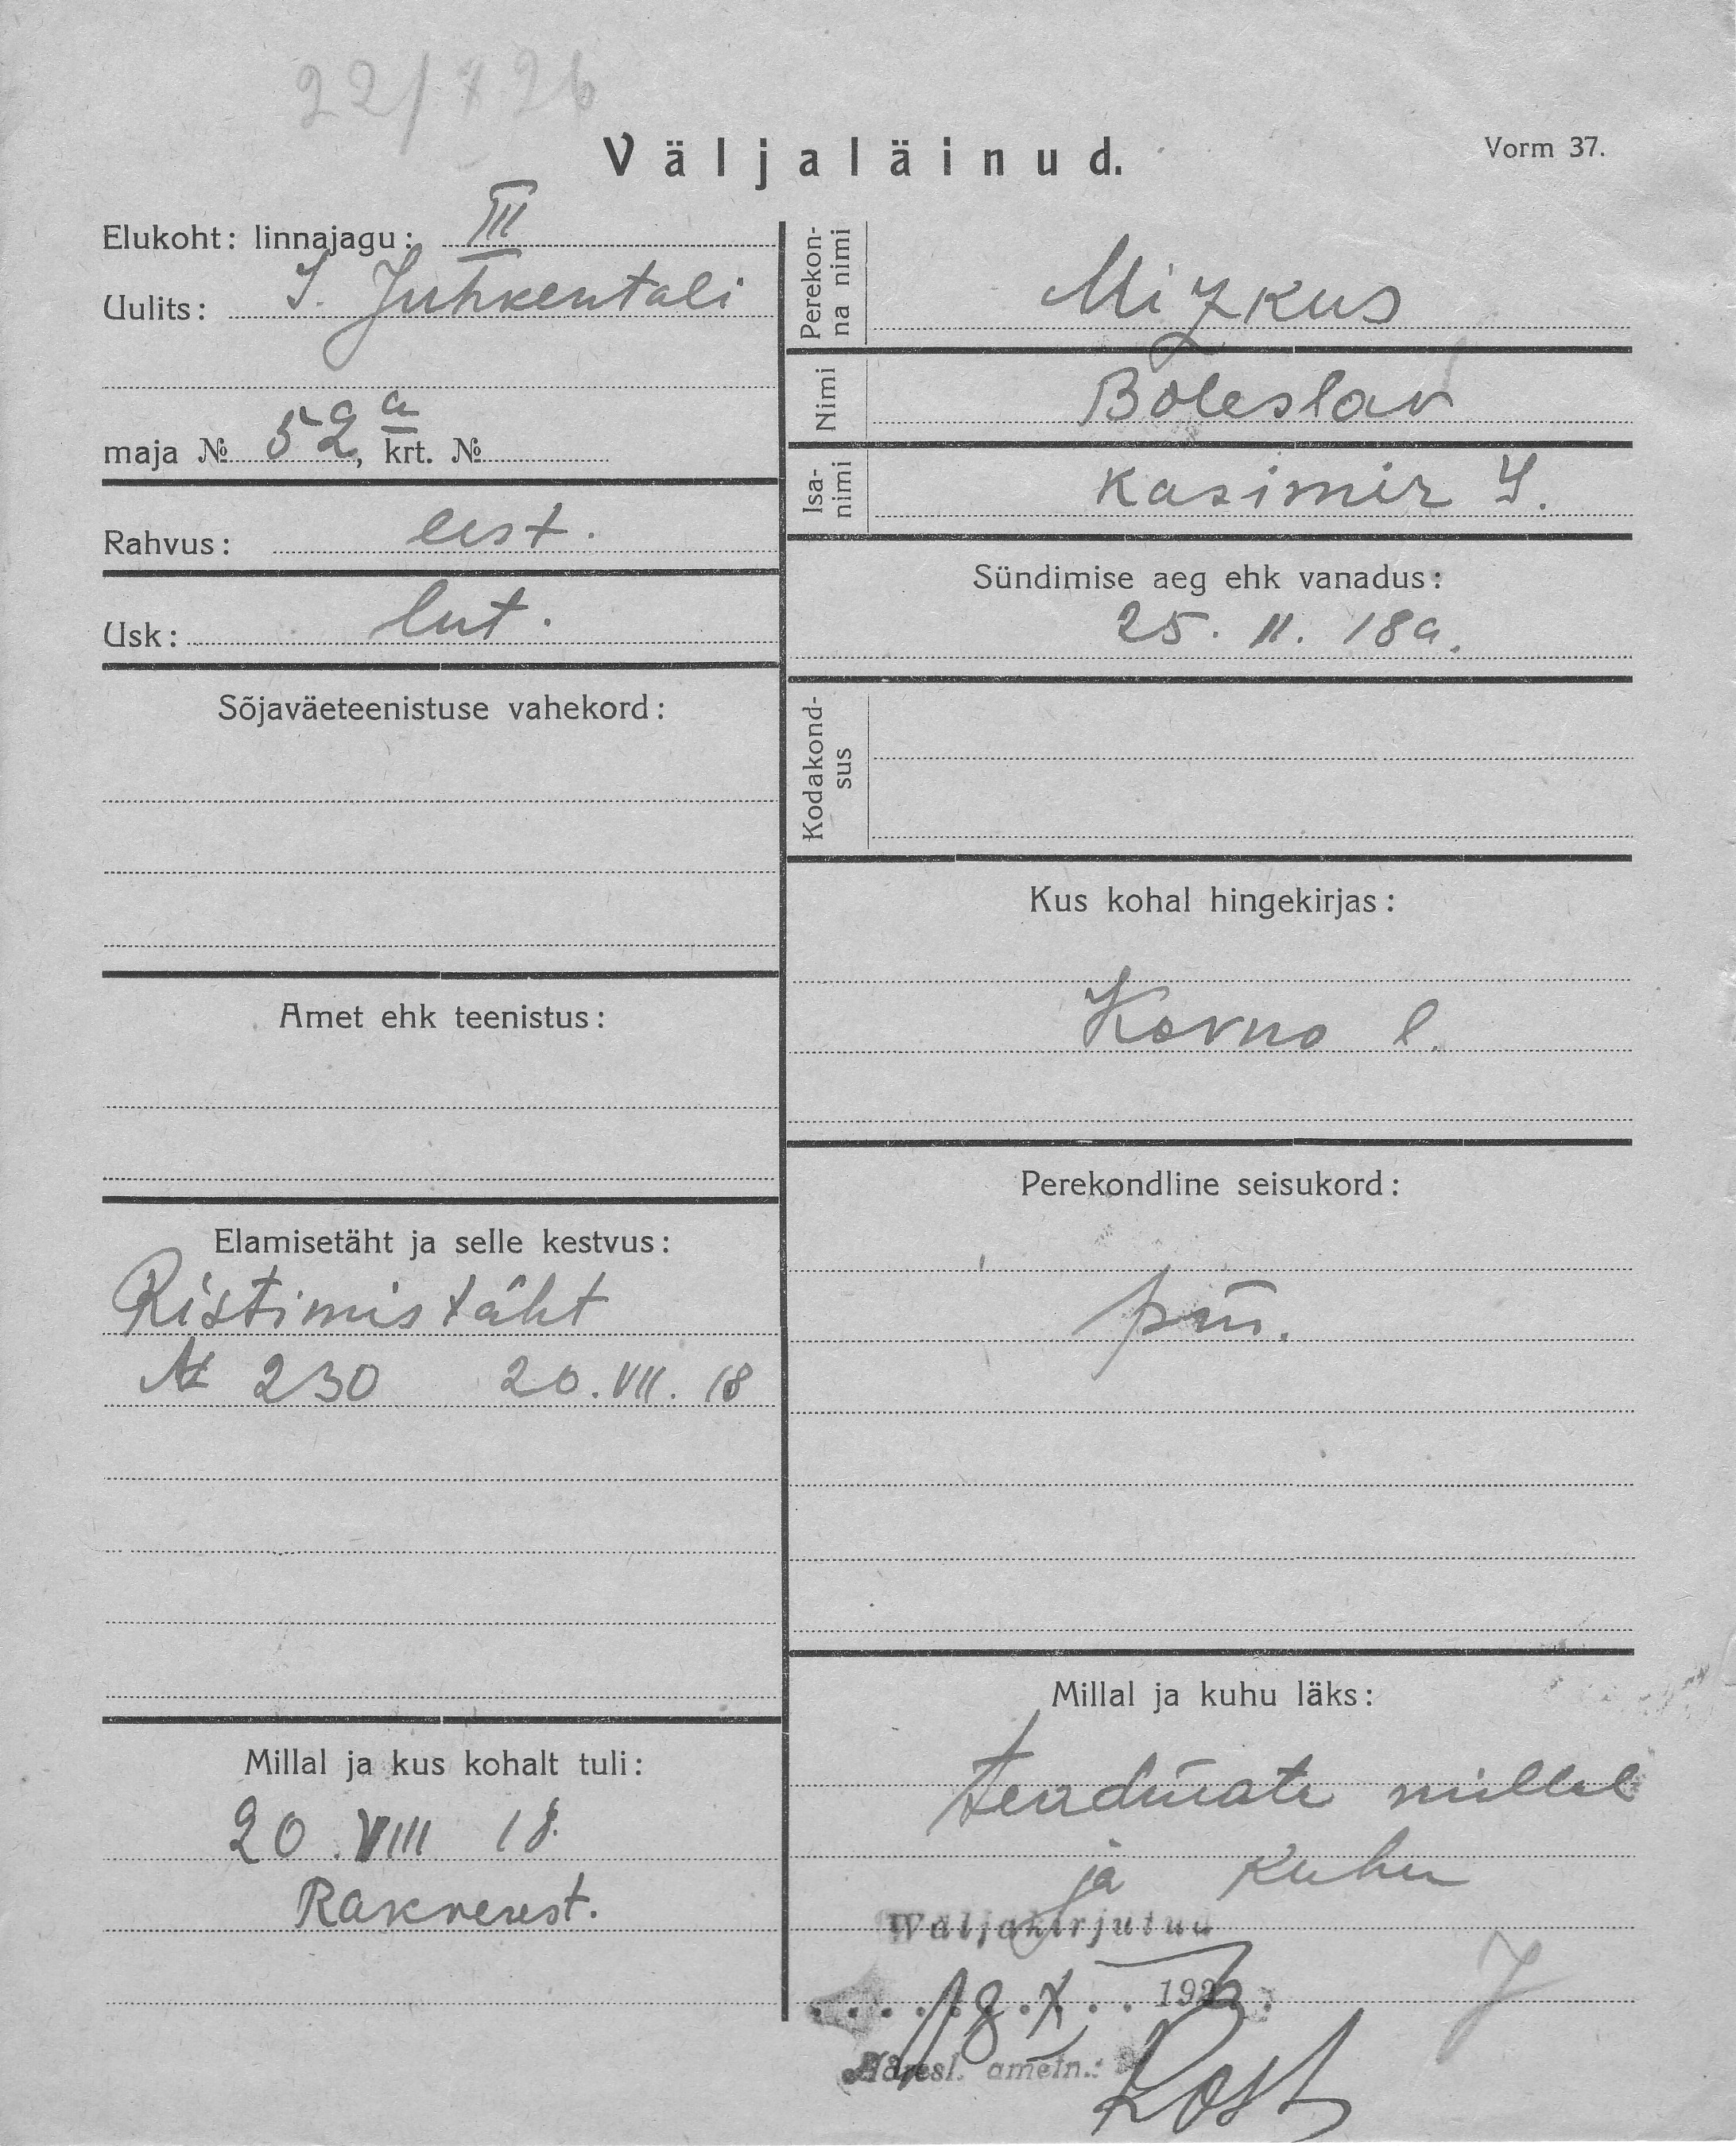 22/X 26
Väljaläinud.
Vorm 37.
Elukoht: linnajagu: III
Uulits: J. Juhkentali
maja № 52a, krt. №
Rahvus: eest.
Usk: lut.
Sõjaväeteenistuse vahekord:
Amet ehk teenistus:
Elamisetäht ja selle kestvus:
Ristimistäht
№ 230 20. VII. 18
Millal ja kus kohalt tuli:
20. VIII 18.
Rakverest.
Perekon-
na nimi
Mizkus
Nimi
Boleslav
Isa-
nimi
Kasimir J.
Sündimise aeg ehk vanadus:
25. II. 18a.
Kodakond-
sus
Kus kohal hingekirjas:
Kovno l.
Perekondline seisukord:
Millal ja kuhu läks:
teadmata millal
ja kuhu
Wäljakirjutud
18. X 1923.
J
Adresl. ametn.: Kost